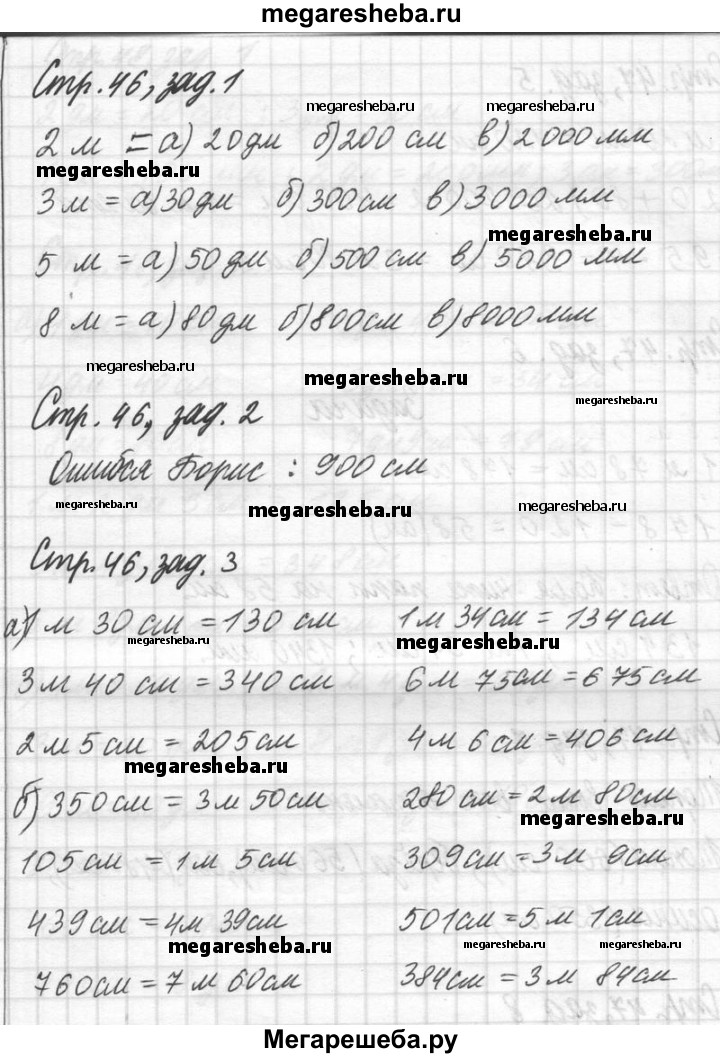 megaresheba.ru
Стр. 46, зад. 1
megaresheba.ru megaresheba.ru
2 м = а) 20 дм б) 200 см в) 2000 мм
megaresheba.ru
3 м = а) 30 дм б) 300 см в) 3000 мм
megaresheba.ru
5 м = а) 50 дм б) 500 см в) 5000 мм
8 м = а) 80 дм б) 800 см в) 8000 мм
megaresheba.ru megaresheba.ru
megaresheba.ru
Стр. 46, зад. 2
Ошибся Борис : 900 см
megaresheba.ru megaresheba.ru megaresheba.ru
Стр. 46, зад. 3
а) 1 м 30 см = 130 см 1 м 34 см = 134 см
megaresheba.ru megaresheba.ru
3 м 40 см = 340 см 6 м 75 см = 675 см
2 м 5 см = 205 см 4 м 6 см = 406 см
megaresheba.ru
б) 350 см = 3 м 50 см 280 см = 2 м 80 см
megaresheba.ru
105 см = 1 м 5 см 309 см = 3 м 9 см
439 см = 4 м 39 см 501 см = 5 м 1 см
megaresheba.ru megaresheba.ru megaresheba.ru
760 см = 7 м 60 см 384 см = 3 м 84 см
Мегарешеба.ру